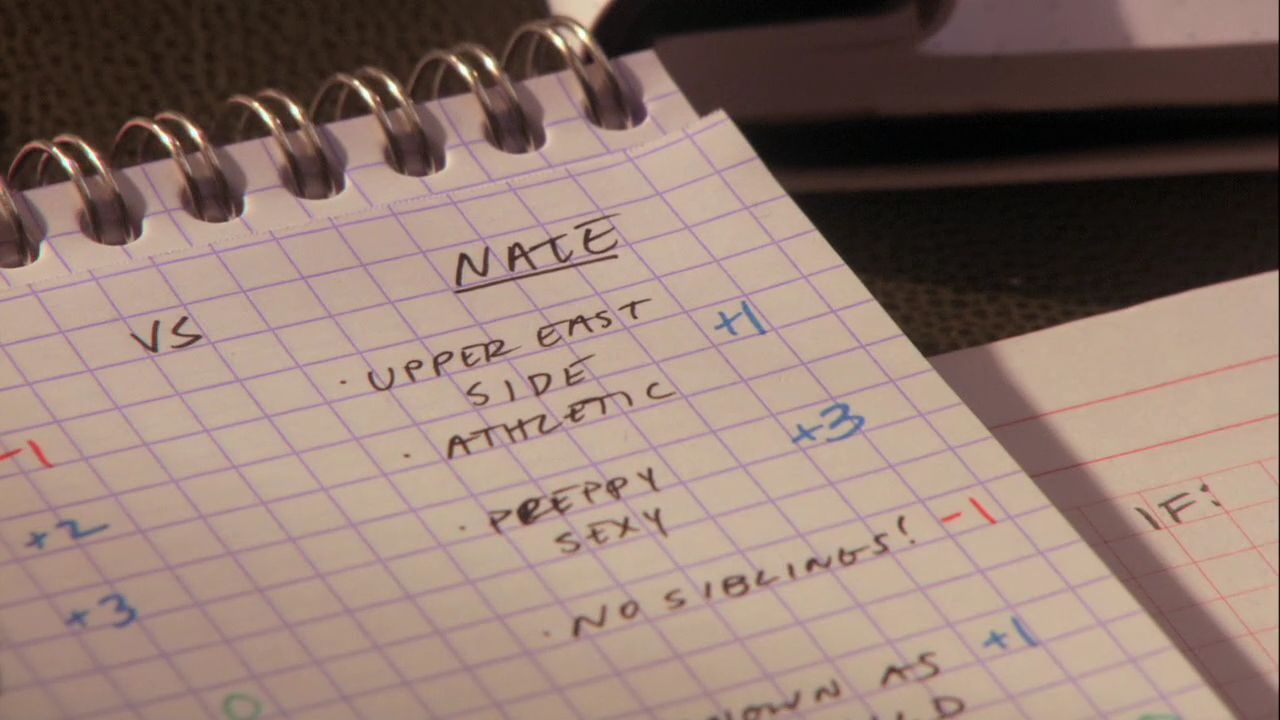 NATE
VS
· UPPER EAST +1
SIDE
· ATHLETIC +3
-1
· PREPPY
SEXY
+2
· NO SIBLINGS! -1
IF:
+3
AS +1
0